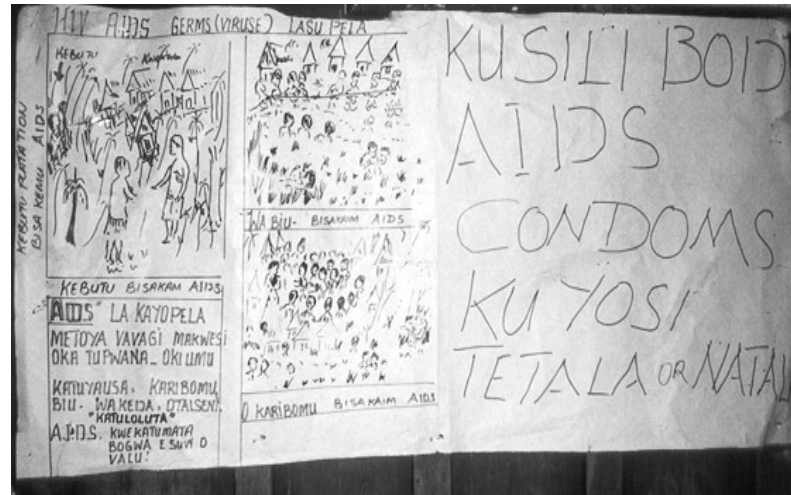 HIV AIDS GERMS (VIRUSE) LASU PELA
KEBUTU
KEBUTU PLATATION
BISA KEMU AIDS
KEBUTU BISAKAM AIDS
"AIDS" LA KAYOPELA
METOYA VAVAGI MAKWESI
OKA TUPWANA - OKIUMU
KATUYAUSA, KARIBOMU,
BIU - WAKEIDA, OTALSENI.
"KATULOLUTA"
AIDS. KWEKATUMATA
BOGWA ESUVI O
VALU.
WA BIU - BISAKAIM AIDS
O KARIBOMU BISAKAIM AIDS
KUSILI BOID
AIDS
CONDOMS
KU YOSI
TETALA OR NATAU